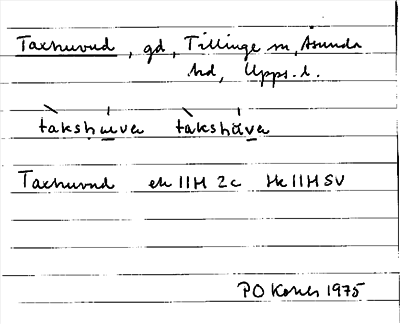 Taxhuvud, gd, Tillinge sn, Åsunda
hd, Upps. l.
tàkshu̲vе tàkshùv̲e
Taxhuvud ek 11H 2c Hk 11H SV
PO 1975